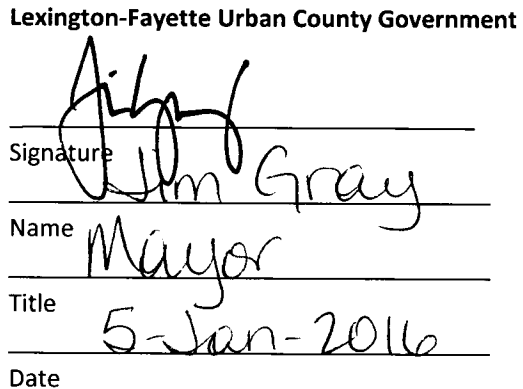 Lexington-Fayette Urban County Government
Signature
Jim Gray
Name
Mayor
Title
5-Jan-2016
Date